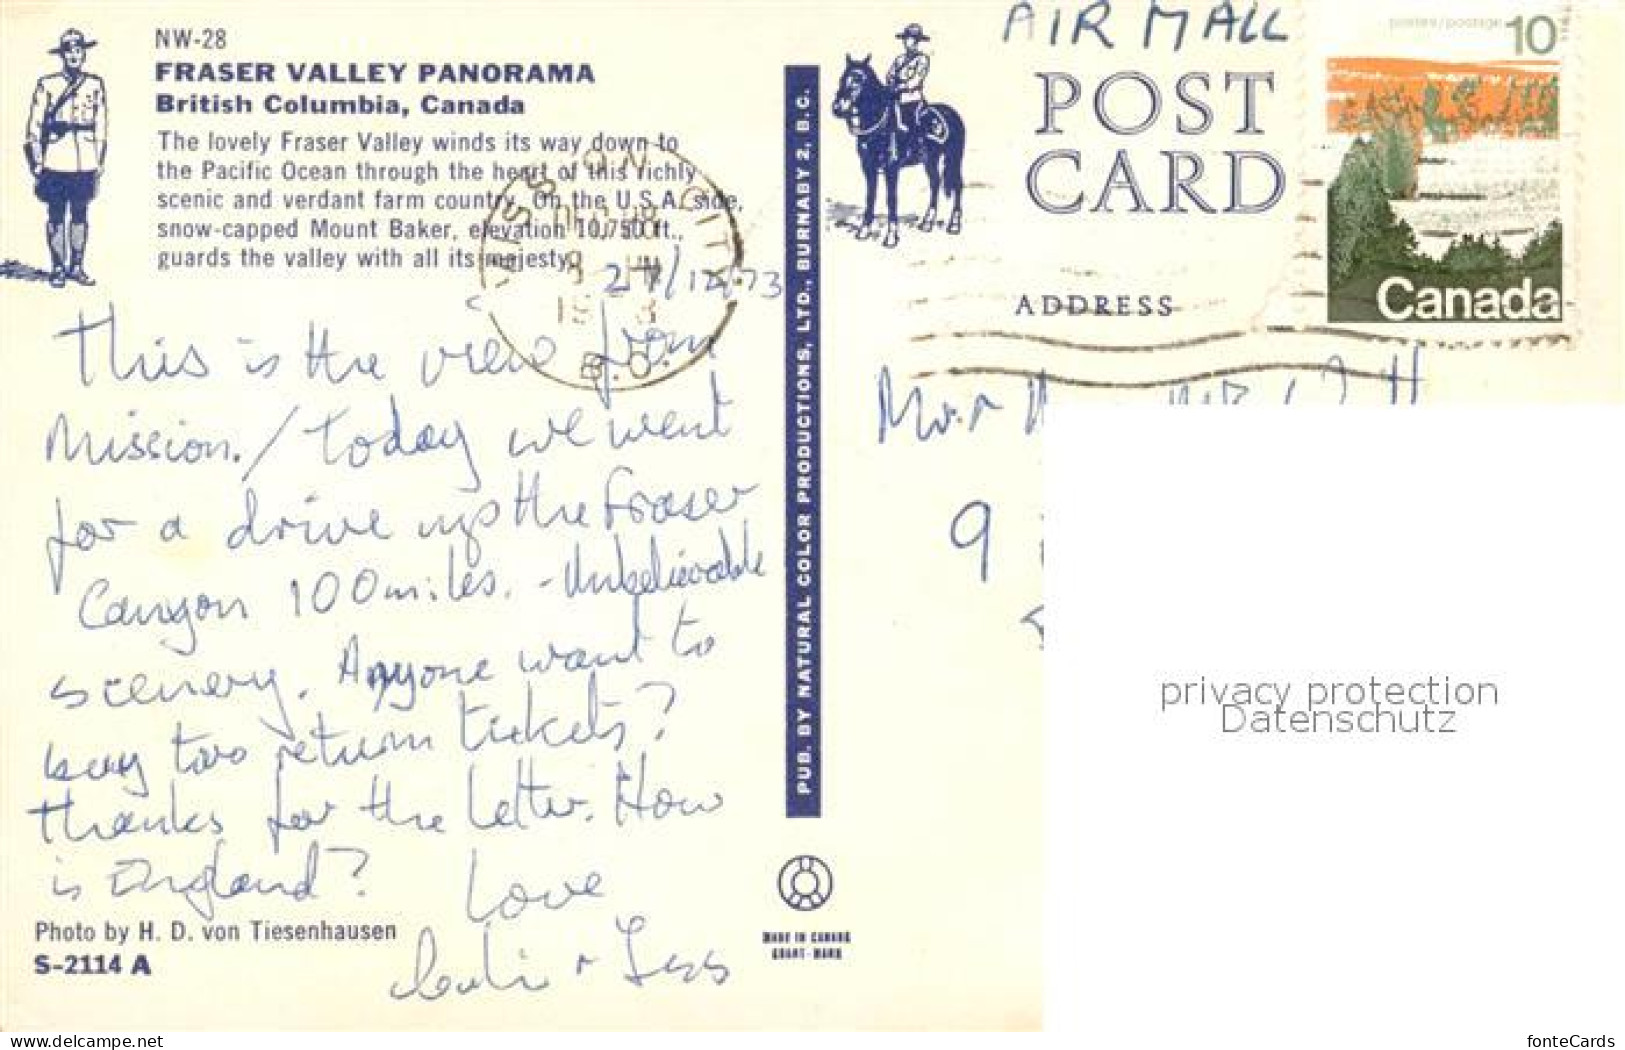 NW-28
FRASER VALLEY PANORAMA
British Columbia, Canada
The lovely Fraser Valley winds its way down to
the Pacific Ocean through the heart of this richly
scenic and verdant farm country. On the U.S.A. side,
snow-capped Mount Baker, elevation 10,750 ft.,
guards the valley with all its majesty.
MISSION CITY
B.C.
27/12/73
This is the view from
Mission. / Today we went
for a drive up the Fraser
Canyon 100 miles. - Unbelievable
scenery. Anyone want to
buy two return tickets?
Thanks for the letter. How
is England?
Love
+
Photo by H. D. von Tiesenhausen
S-2114 A
PUB. BY NATURAL COLOR PRODUCTIONS, LTD., BURNABY 2, B.C.
MADE IN CANADA
GRANT-MANN
AIR MAIL
POST
CARD
ADDRESS
postes/postage 10
Canada
9
privacy protection
Datenschutz
www.delcampe.net
fonteCards